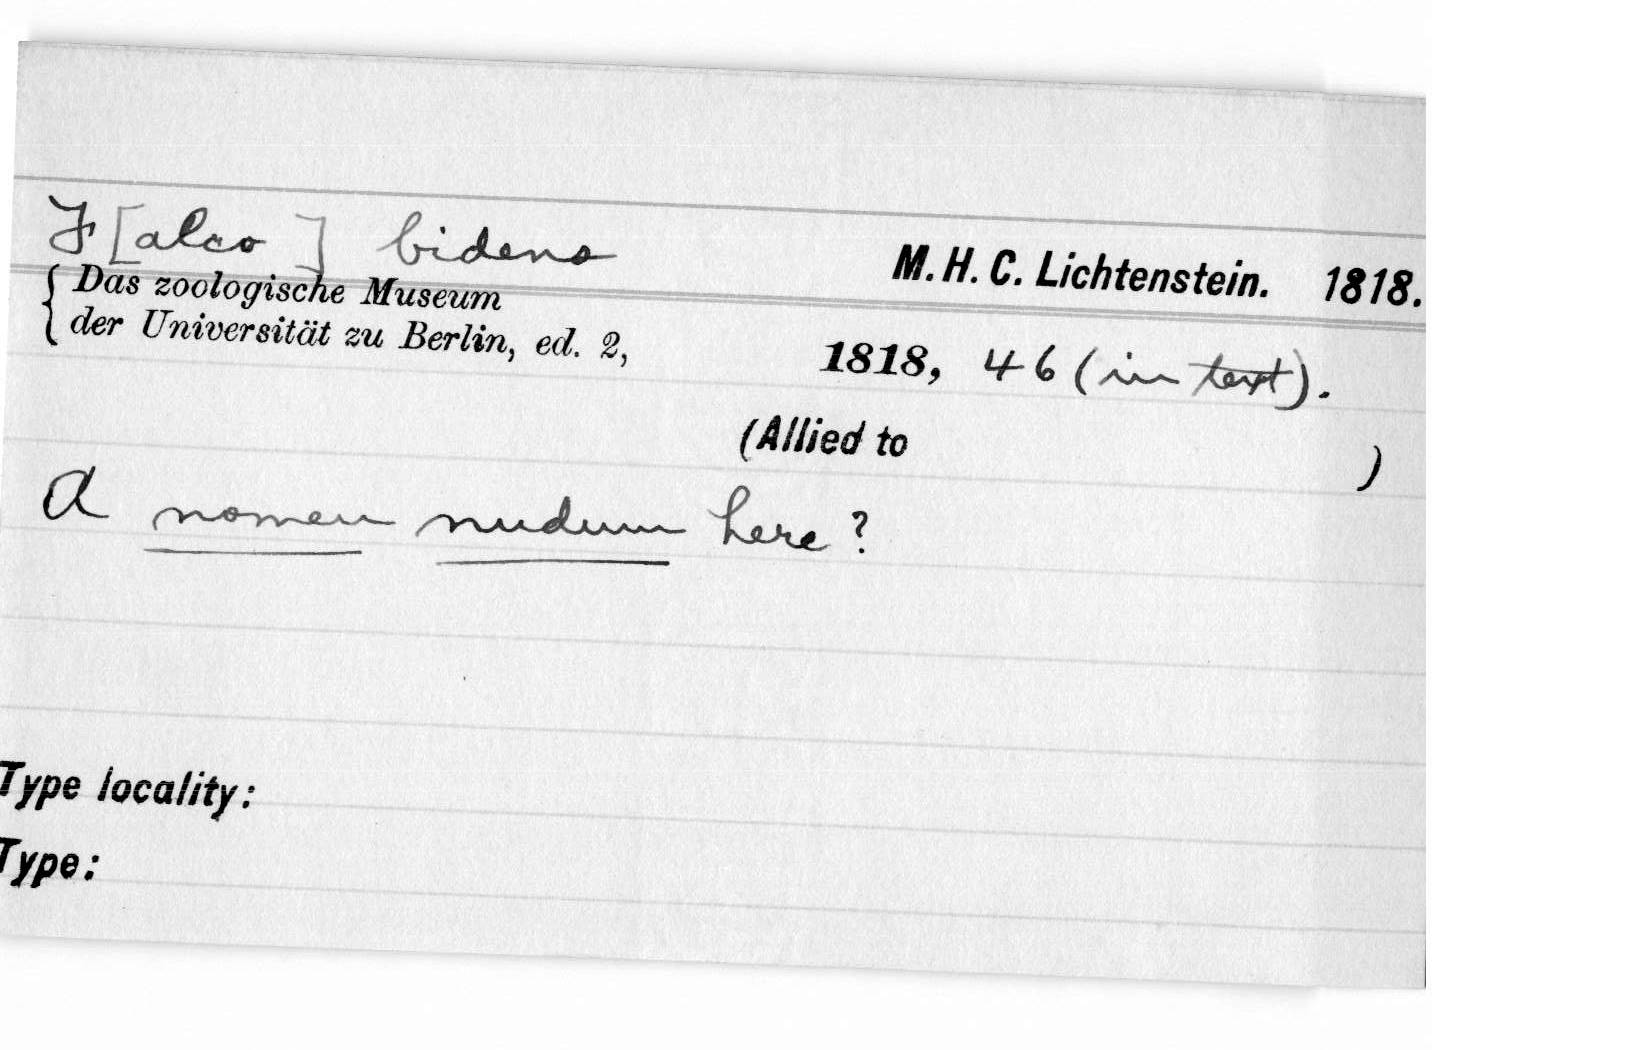 F[alco] bidens
M. H. C. Lichtenstein. 1818.
Das zoologische Museum
der Universität zu Berlin, ed. 2,
1818, 46 (in text).
(Allied to )
A nomen nudum here?
Type locality:
Type: